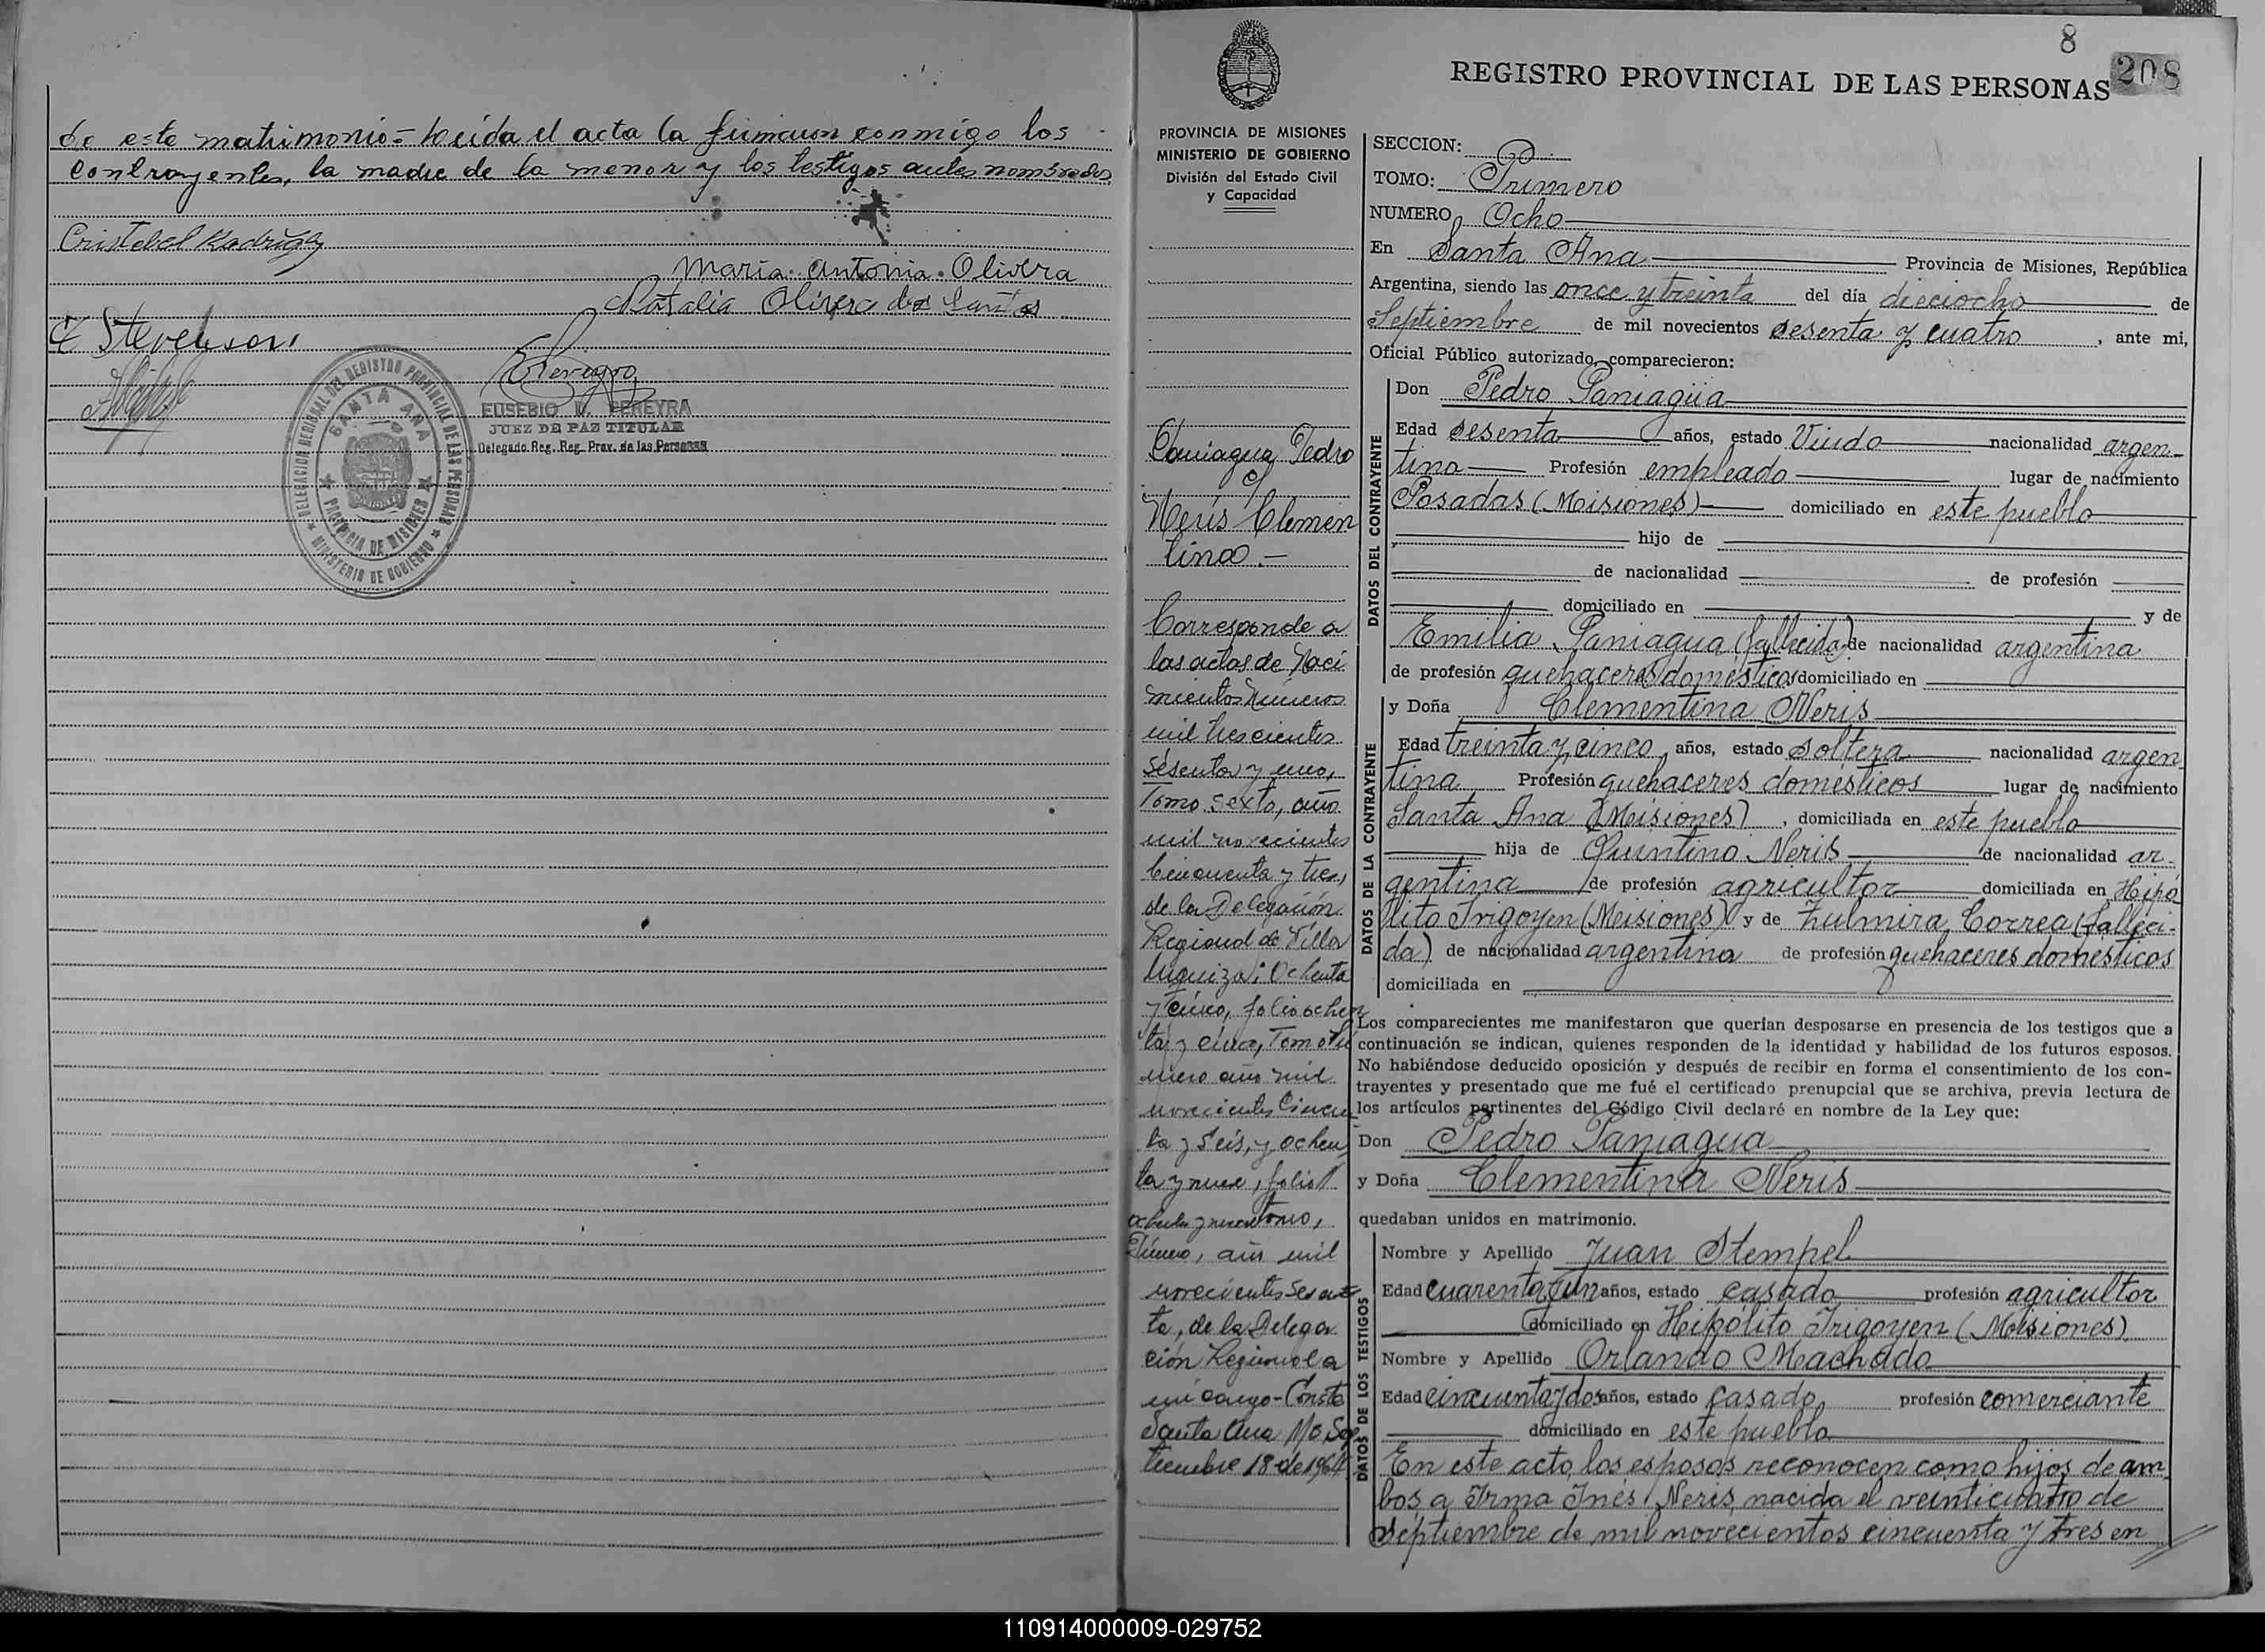 de este matrimonio = Leída el acta la firmaron conmigo los
contrayentes, la madre de la menor y los testigos antes nombrados
María Antonia Olivera
Natalia Olivera dos Santos
EUSEBIO PEREYRA
JUEZ DE PAZ TITULAR
Delegado Reg. Reg. Prov. de las Personas
DELEGACION REGIONAL DEL REGISTRO PROVINCIAL DE LAS PERSONAS
SANTA ANA
PROVINCIA DE MISIONES
MINISTERIO DE GOBIERNO
8
208
REGISTRO PROVINCIAL DE LAS PERSONAS
PROVINCIA DE MISIONES
MINISTERIO DE GOBIERNO
División del Estado Civil
y Capacidad
Paniagua Pedro
c/
Neris Clemen
tina.-
Corresponde a
las actas de Naci
mientos números
mil trescientos
sesenta y uno,
Tomo sexto, año
mil novecientos
cincuenta y tres,
de la Delegación
Regional de Villa
Urquiza; Ochenta
y cinco, folio ochen
ta y cinco, Tomo Pri
mero año mil
novecientos cincuen
ta y seis, y ochen
ta y nueve, folio
ochenta y nueve tomo,
Primero, año mil
novecientos sesen
ta, de la Delega
ción Regional a
mi cargo - Conste
Santa Ana Ms Sep
tiembre 18 de 1964
SECCION:
TOMO: Primero
NUMERO Ocho
En Santa Ana Provincia de Misiones, República
Argentina, siendo las once y treinta del día dieciocho de
Septiembre de mil novecientos sesenta y cuatro, ante mi,
Oficial Público autorizado comparecieron:
DATOS DEL CONTRAYENTE
Don Pedro Paniagüa
Edad sesenta años, estado Viudo nacionalidad argen-
tina Profesión empleado lugar de nacimiento
Posadas (Misiones) domiciliado en este pueblo
hijo de
de nacionalidad de profesión
domiciliado en y de
Emilia Paniagua (fallecida) de nacionalidad argentina
de profesión quehaceres domésticos domiciliado en
DATOS DE LA CONTRAYENTE
y Doña Clementina Neris
Edad treinta y cinco, años, estado soltera nacionalidad argen
tina Profesión quehaceres domésticos lugar de nacimiento
Santa Ana (Misiones), domiciliada en este pueblo
hija de Quintino Neris de nacionalidad ar-
gentina de profesión agricultor domiciliada en Hipó
lito Irigoyen (Misiones) y de Zulmira Correa (falleci-
da) de nacionalidad argentina de profesión quehaceres domésticos
domiciliada en
Los comparecientes me manifestaron que querían desposarse en presencia de los testigos que a
continuación se indican, quienes responden de la identidad y habilidad de los futuros esposos.
No habiéndose deducido oposición y después de recibir en forma el consentimiento de los con-
trayentes y presentado que me fué el certificado prenupcial que se archiva, previa lectura de
los artículos pertinentes del Código Civil declaré en nombre de la Ley que:
Don Pedro Paniagua
y Doña Clementina Neris
quedaban unidos en matrimonio.
DATOS DE LOS TESTIGOS
Nombre y Apellido Juan Stempel
Edad cuarenta y un años, estado casado profesión agricultor
domiciliado en Hipólito Irigoyen (Misiones)
Nombre y Apellido Orlando Machado
Edad cincuenta y dos años, estado casado profesión comerciante
domiciliado en este pueblo
En este acto los esposos reconocen como hijos de am
bos a Irma Inés Neris, nacida el veinticuatro de
Septiembre de mil novecientos cincuenta y tres en
110914000009-029752